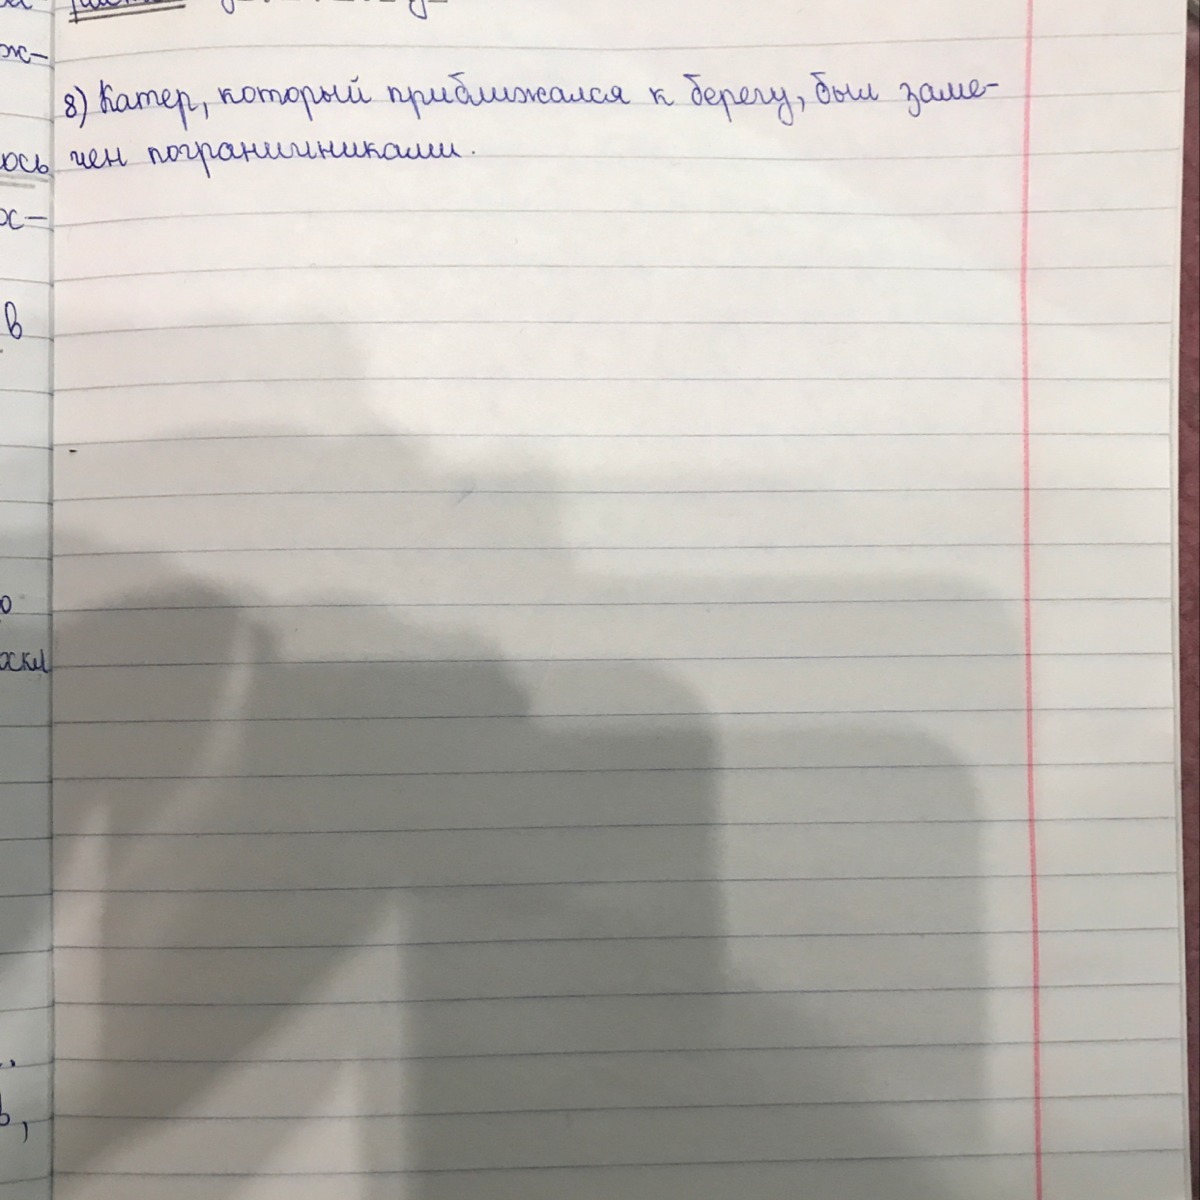 ж-
8) Катер, который приближался к берегу, был заме-
ось чен пограничниками.
ж-
в
о
оски